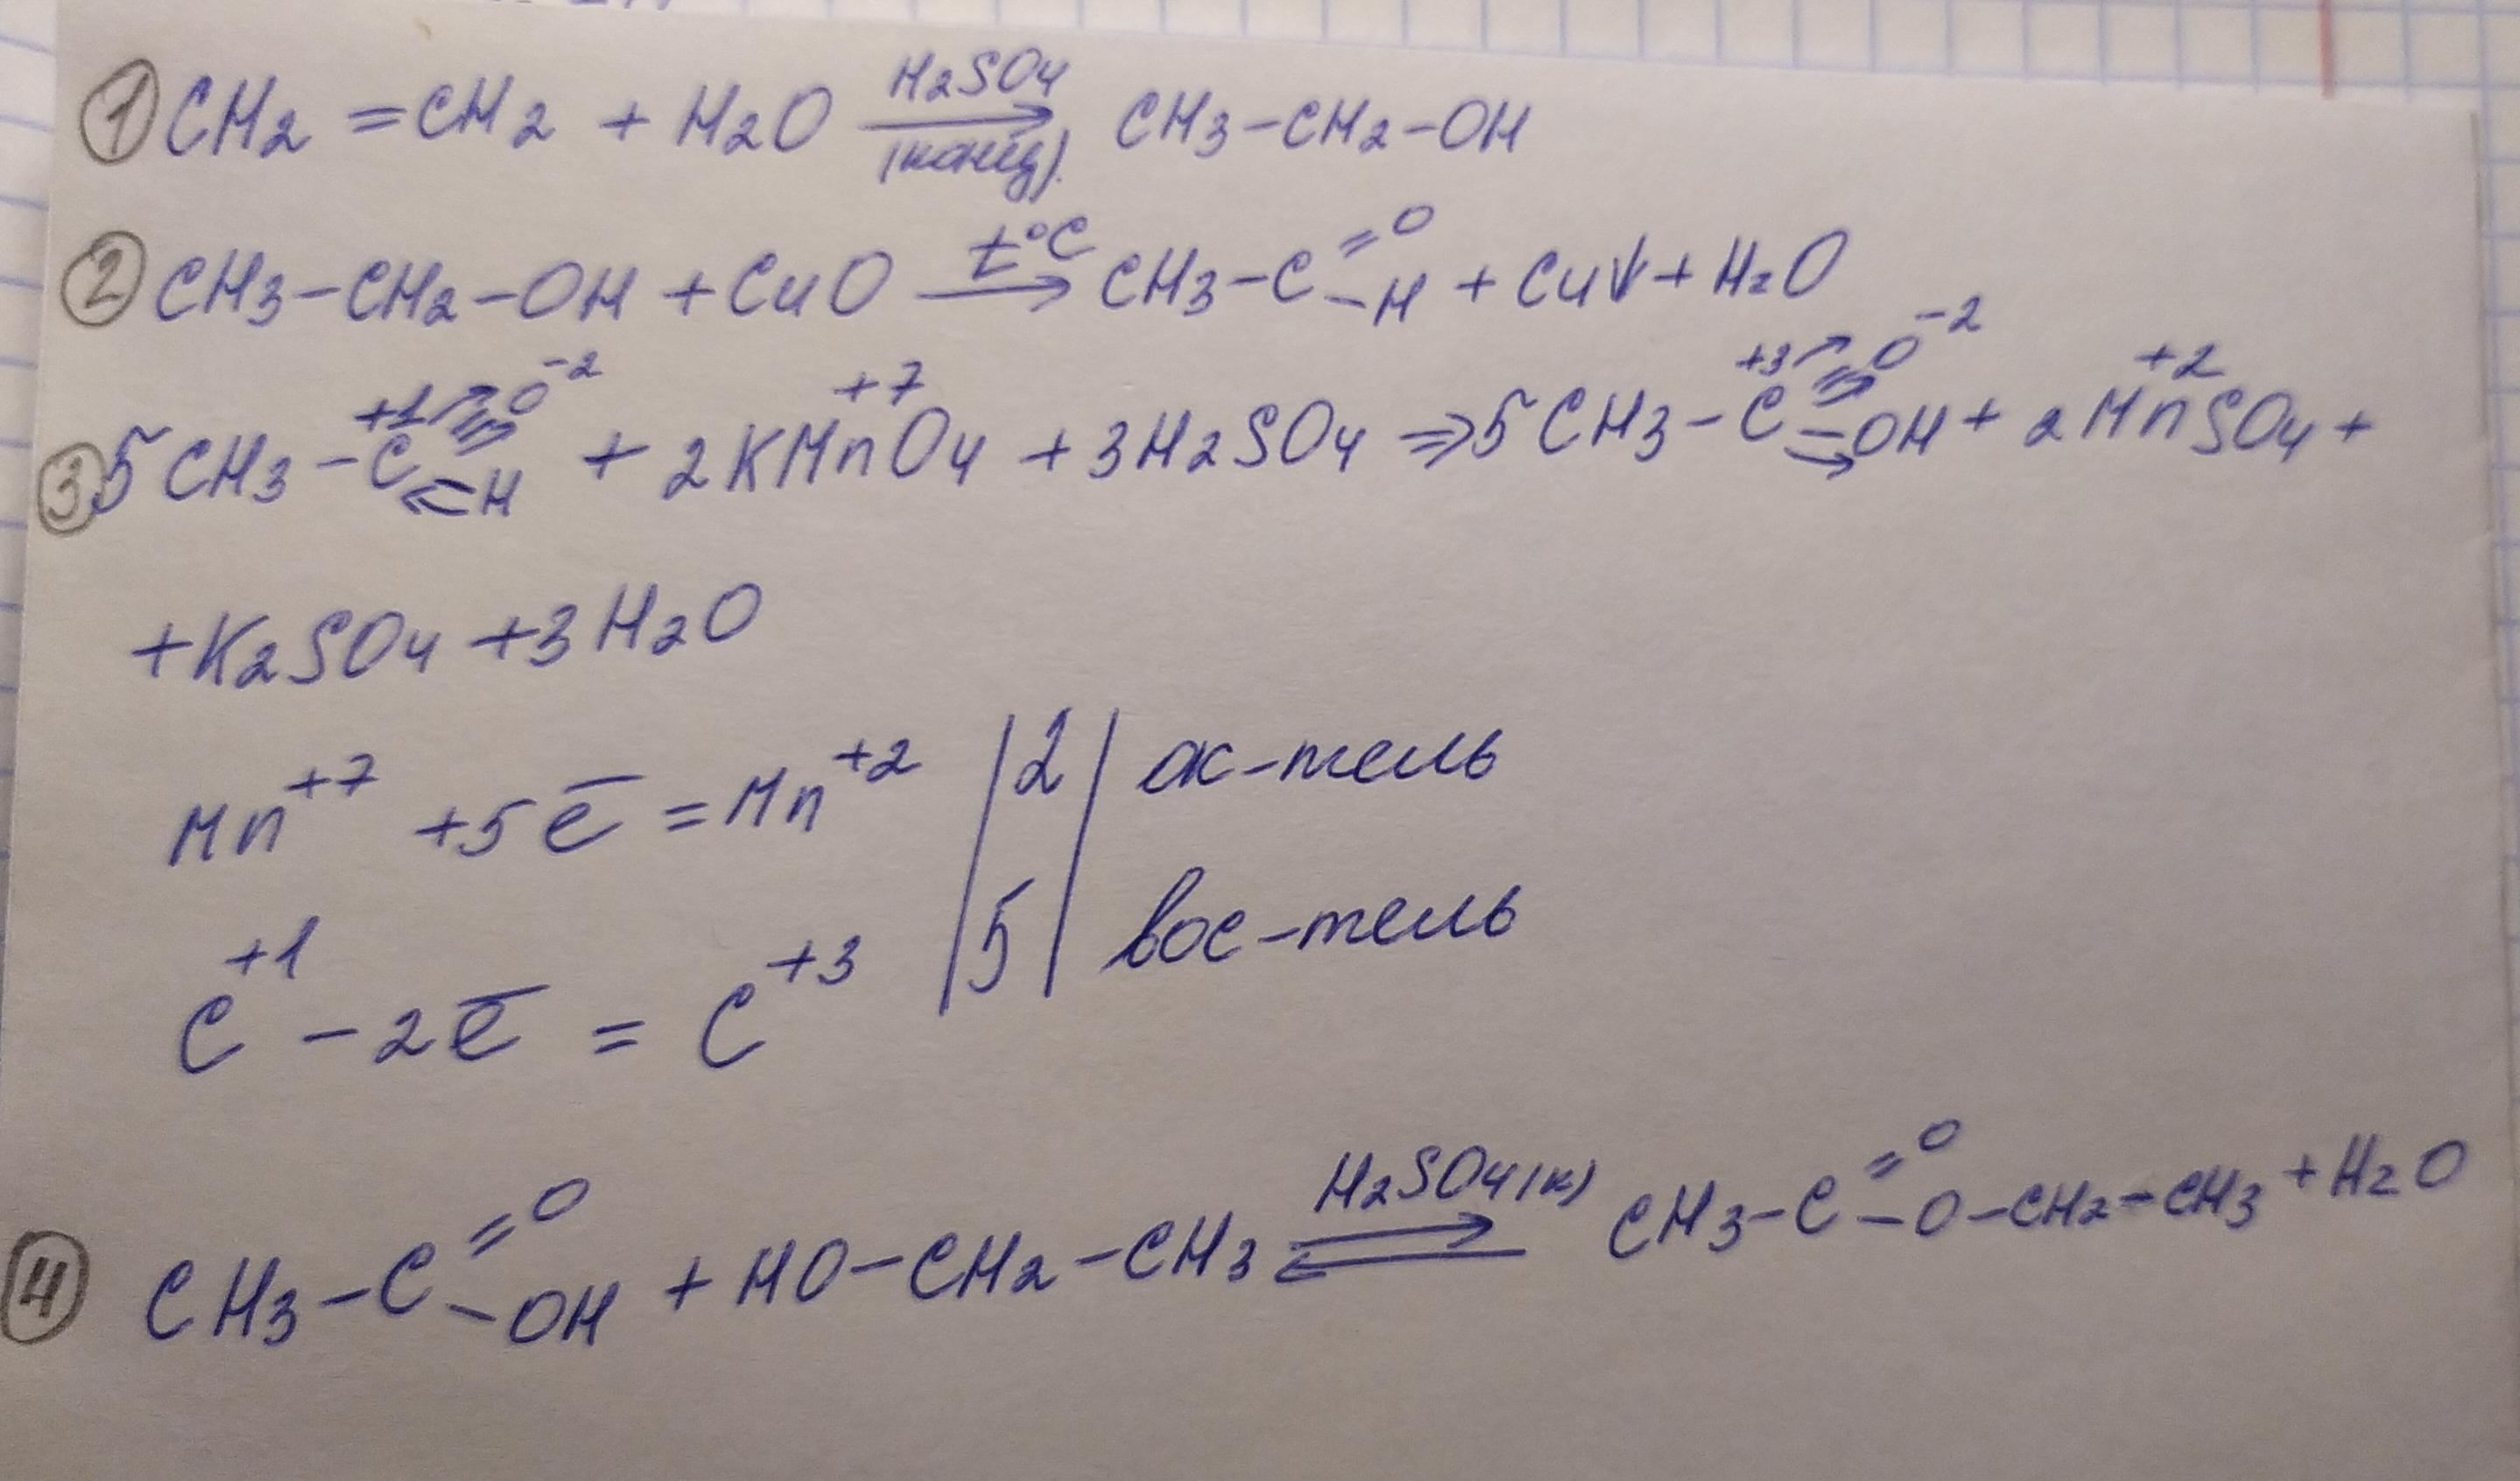 ① CH2 = CH2 + H2O H2SO4 (конц). → CH3-CH2-OH
② CH3-CH2-OH + CuO t°C → CH3-C =O -H + Cu↓ + H2O
③ 5CH3-C+1 =O-2 -H + 2KMn+7O4 + 3H2SO4 ⇒ 5CH3-C+3 =O-2 -OH + 2Mn+2SO4 +
+K2SO4 + 3H2O
Mn+7 +5ē = Mn+2 |2| ок-тель
C+1 - 2ē = C+3 |5| вос-тель
④ CH3-C =O -OH + HO-CH2-CH3 H2SO4(к) ⇄ CH3-C =O -O-CH2-CH3 + H2O